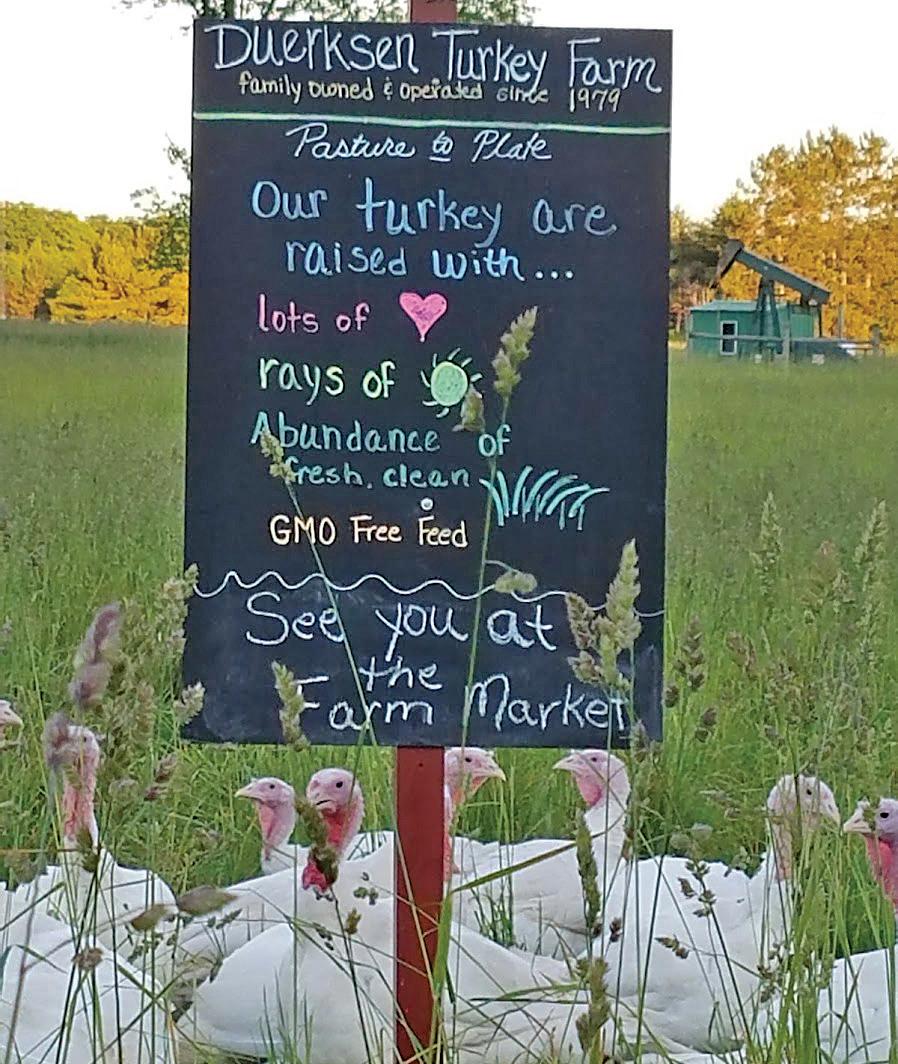 Duerksen Turkey Farm
family owned & operated since 1979
Pasture to Plate
Our turkey are
raised with...
lots of
rays of
Abundance of
fresh, clean
GMO Free Feed
See you at
the
Farm Market